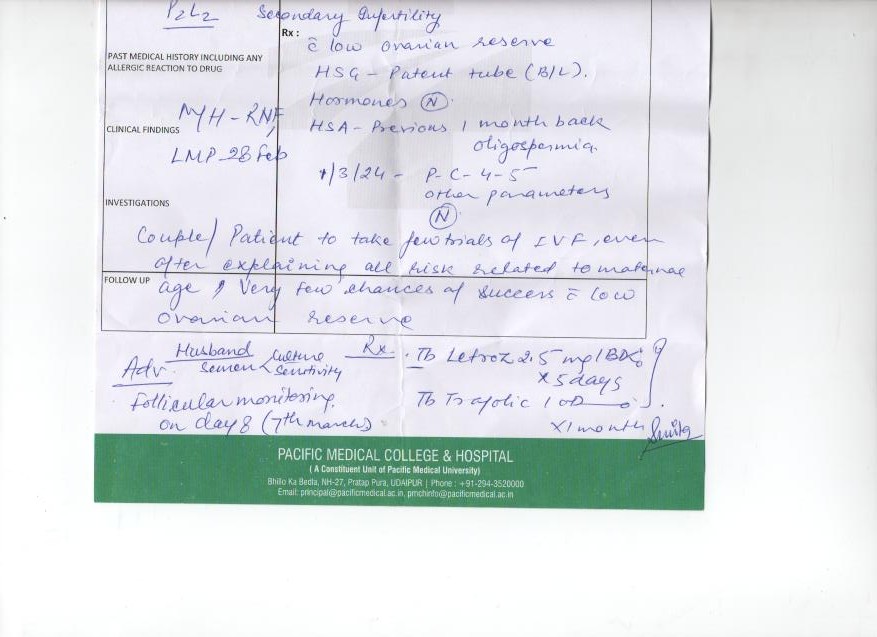 P2L2 Secondary Infertility
Rx :
c̄ low ovarian reserve
PAST MEDICAL HISTORY INCLUDING ANY
ALLERGIC REACTION TO DRUG
HSG - Patent tube (B/L).
Hormones (N).
M/H - RNF,
CLINICAL FINDINGS
HSA - Previous 1 month back
oligospermia.
LMP - 28 Feb
1/3/24 - P-C-4-5
other parameters
(N)
INVESTIGATIONS
Couple/Patient to take few trials of IVF, even
after explaining all risk related to maternal
FOLLOW UP
age & Very few chances of success c̄ low
ovarian reserve
Adv. Husband Semen < Culture Sensitivity
Rx. Tb Letroz 2.5 mg 1 BD
x 5 days
Follicular monitoring
Tb Trafolic 1 OD
on day 8 (7th march)
x 1 month
PACIFIC MEDICAL COLLEGE & HOSPITAL
( A Constituent Unit of Pacific Medical University)
Bhilo Ka Bedla, NH-27, Pratap Pura, UDAIPUR | Phone : +91-294-3520000
Email: principal@pacificmedical.ac.in, pmchinfo@pacificmedical.ac.in